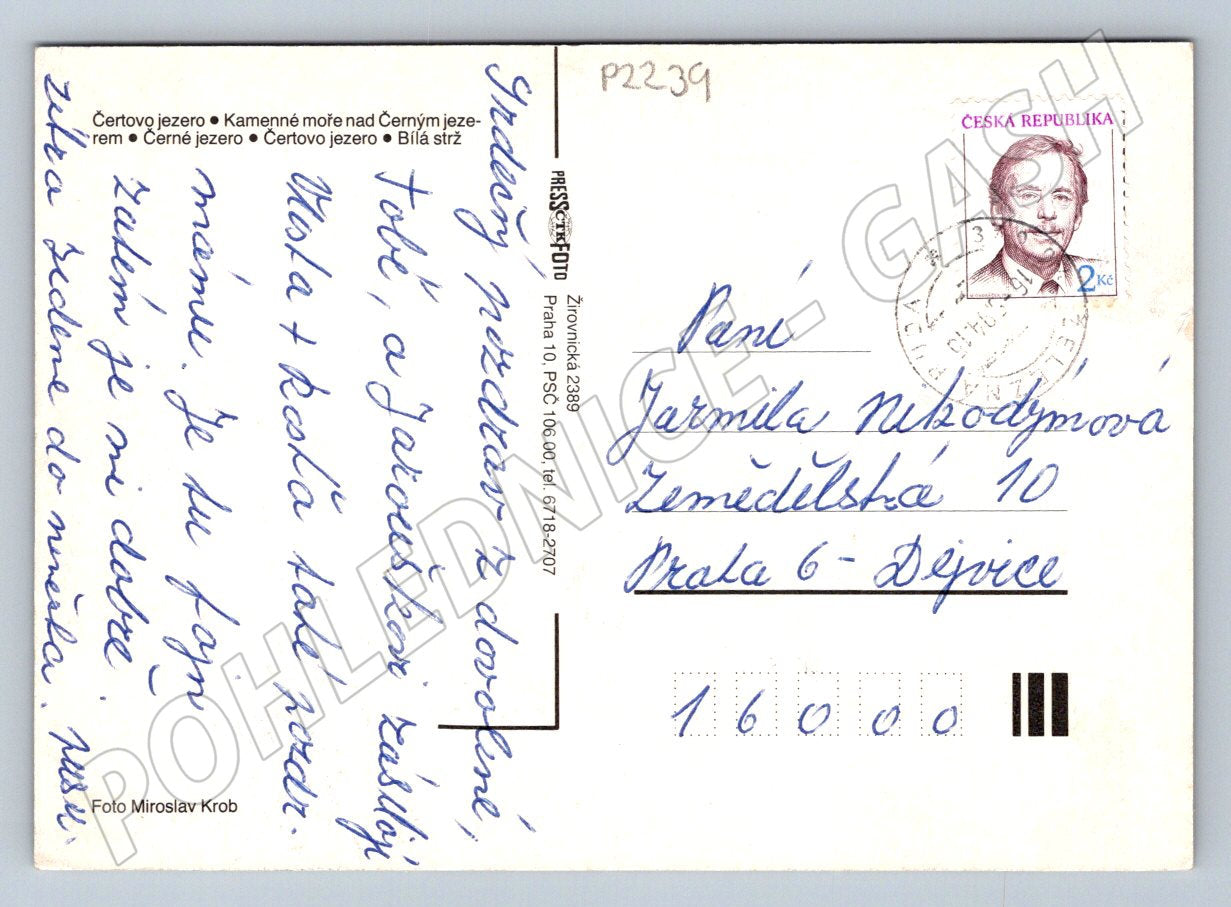 P2239
Čertovo jezero ● Kamenné moře nad Černým jeze-
rem ● Černé jezero ● Čertovo jezero ● Bílá strž
ČESKÁ REPUBLIKA
2 Kč
ŽELEZNÁ RUDA
PRESS ČTK FOTO
Žirovnická 2389
Praha 10, PSČ 106 00, tel. 6718-2707
Srdečný pozdrav z dovolené,
Tobě, a Jarouškovi zasílají
Vlasta + Kosťa také pozdr.
máme. Je tu fajn
zatím je mi dobře.
zítra jedeme do
Paní
Jarmila Nikodýmová
Zemědělská 10
Praha 6 - Dejvice
16000
Foto Miroslav Krob
POHLEDNICE - GASH